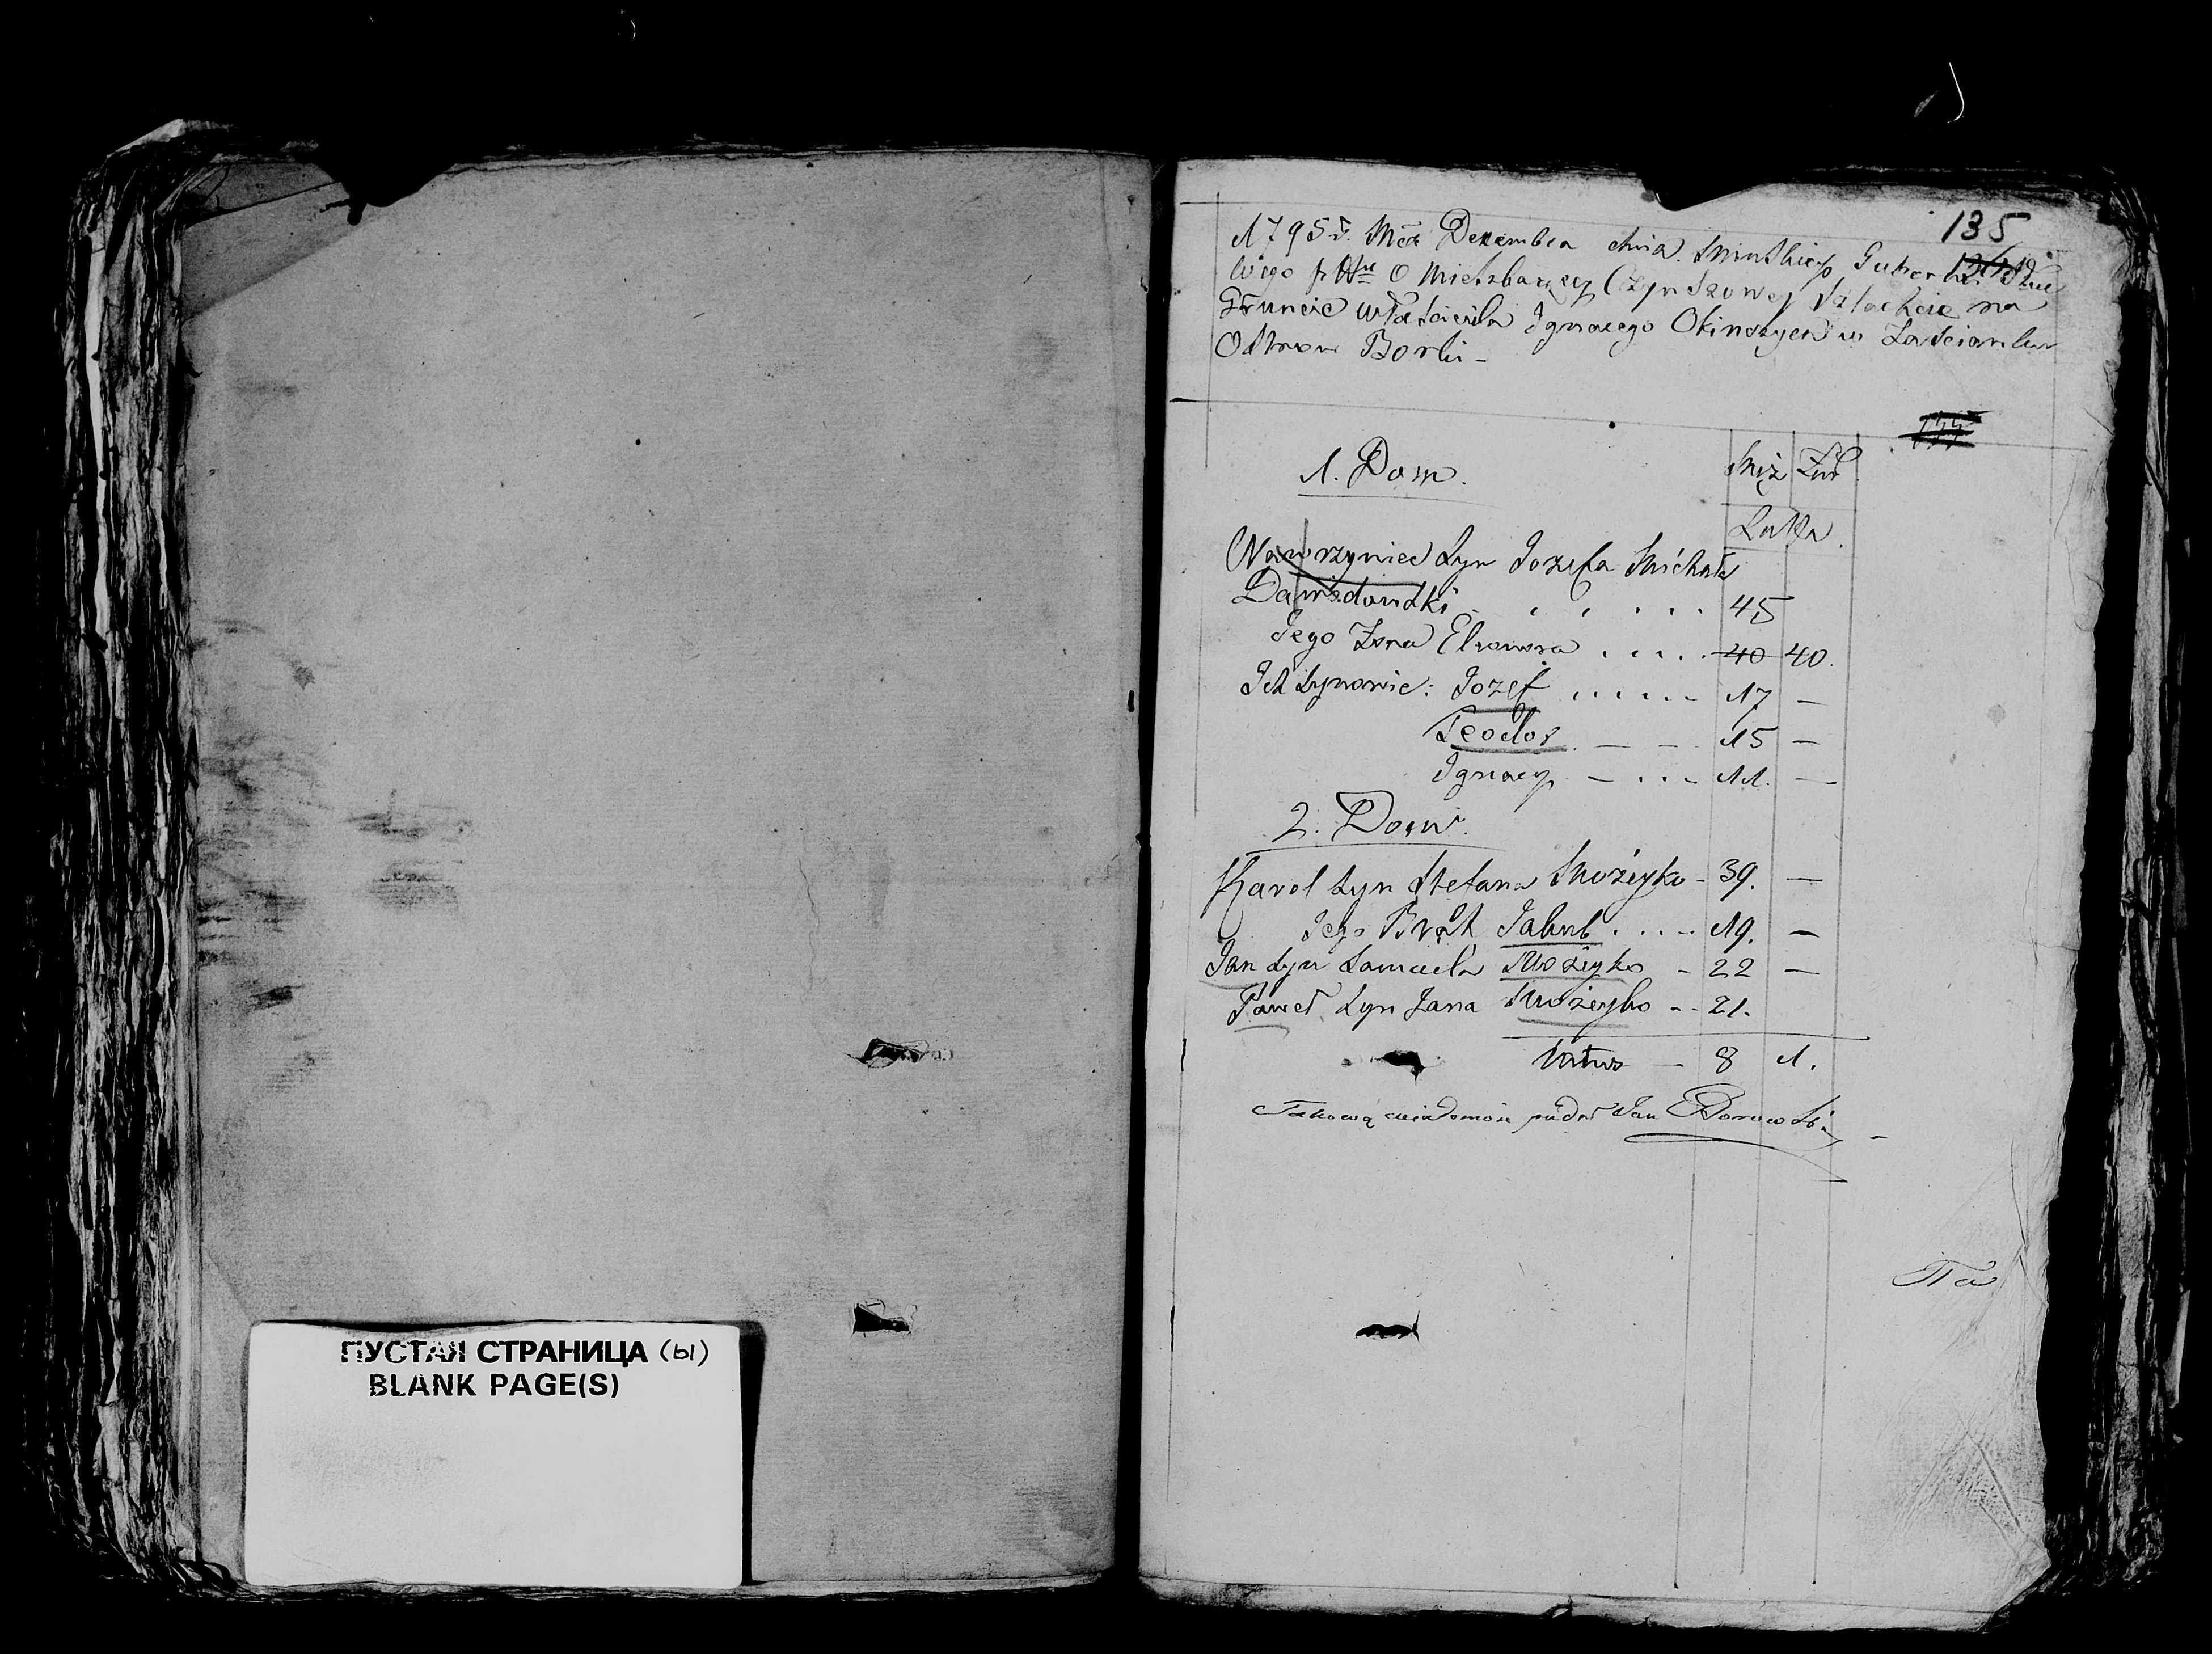 ПУСТАЯ СТРАНИЦА (ы)
BLANK PAGE(S)
135
1795 r. Mca Decembra dnia Minskiey
O Mieszkaiącey Czynszowey Szlachcie na
Gruncie Właściciela Ignacego Okinczyca w Zaścianku
Ostrow Borki -
1. Dom.
Męż Żeń.
Latta.
Wawrzyniec Syn Jozefa Michała
Dawidowski . . . . . 45
Jego Żona Eleonora . . . . 40 40.
Ich Synowie: Jozef . . . . . 17 —
Teodor — — 15 —
Ignacy — . . . 11. —
2. Dom.
Karol Syn Stefana Możeyko - 39. —
Jego Brat Jakub . . . . 19. —
Jan Syn Samuela Możeyko - 22 —
Paweł Syn Jana Możeyko - - 21.
latus — 8 1.
Takową wiadomość podał Jan
Па